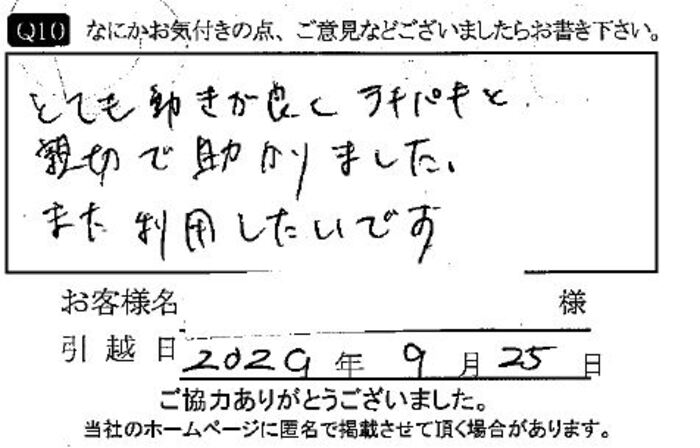 Q10 なにかお気付きの点、ご意見などございましたらお書き下さい。
とても動きが良く テキパキと
親切で助かりました。
また利用したいです
お客様名 様
引越日 2029年 9月 25日
ご協力ありがとうございました。
当社のホームページに匿名で掲載させて頂く場合があります。